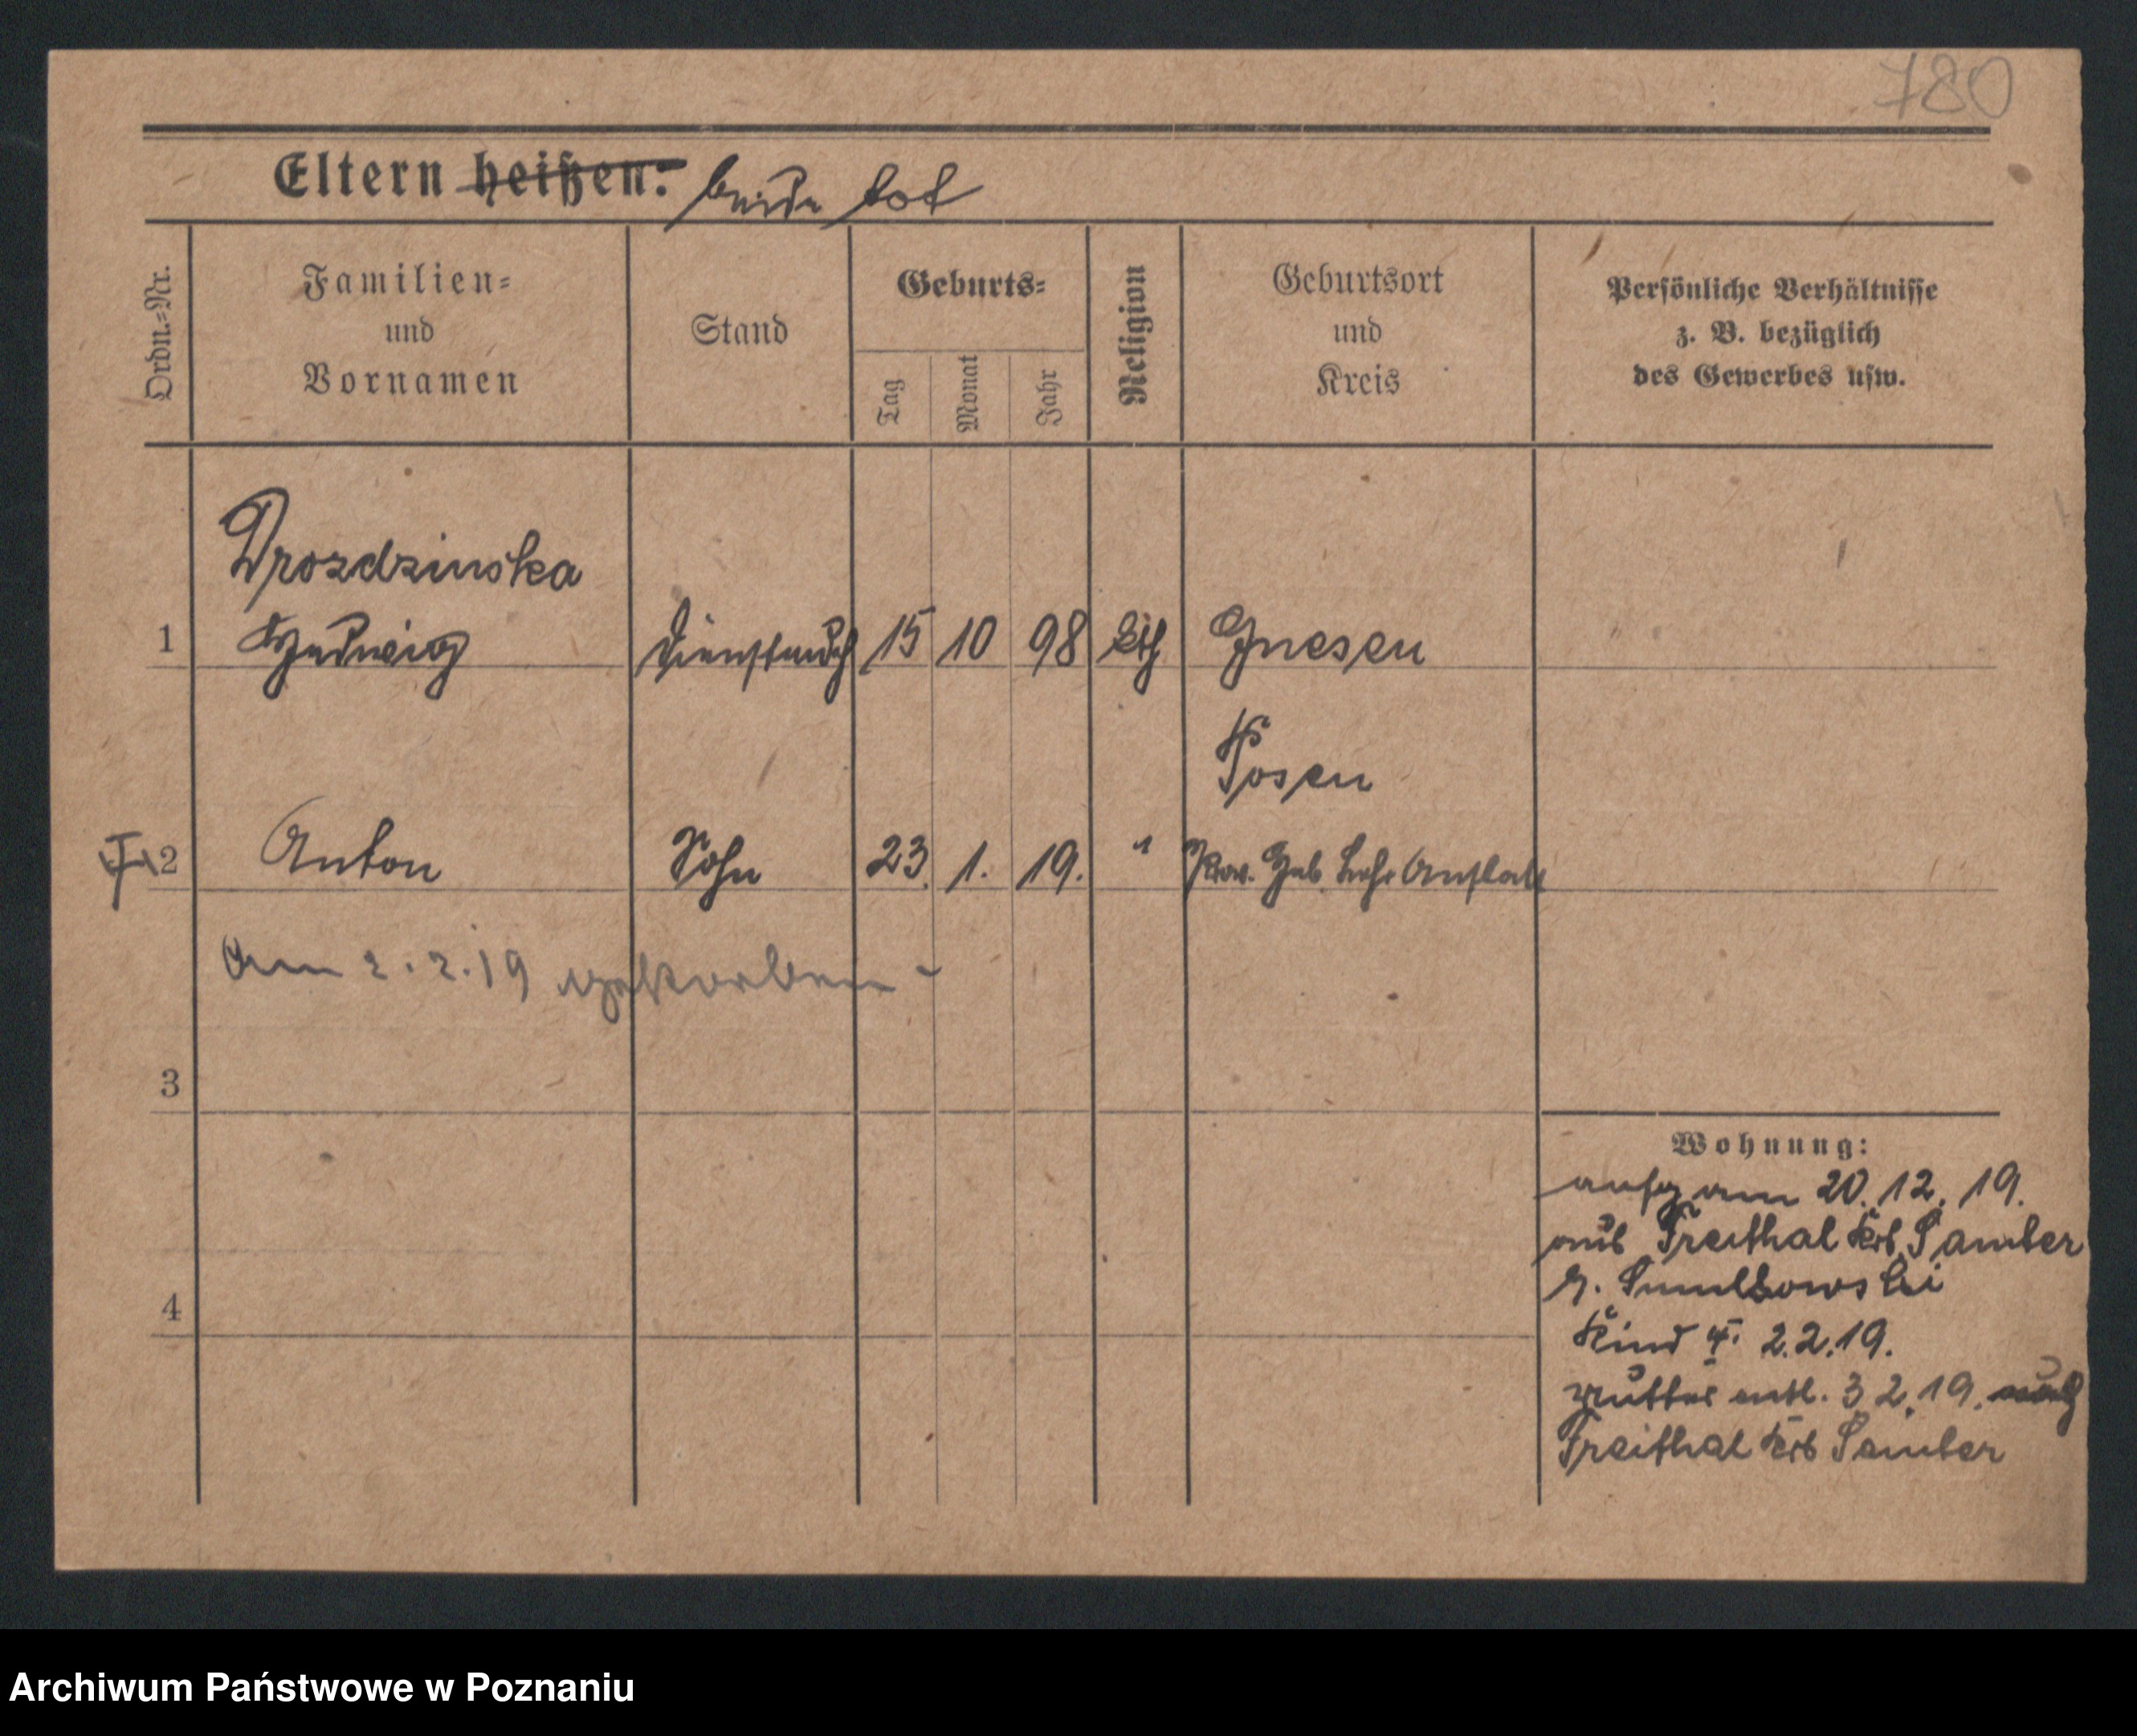 780
Eltern heißen: beide tot
Ordn.=Nr.
Familien=
und
Vornamen
Stand
Geburts=
Tag
Monat
Jahr
Religion
Geburtsort
und
Kreis
Persönliche Verhältnisse
z. B. bezüglich
des Gewerbes usw.
Drozdzinska
1 Hedwig Dienstmdch 15 10 98 kth Gnesen
Posen
2 Anton Sohn 23. 1. 19. " Prov. Heb. Lehr Anstalt
Am 2.2.19 gestorben
3
Wohnung:
aufg am 20.12.19.
aus Freithal Krs. Samter
4
Kind † 2.2.19.
Mutter entl. 3.2.19. nach
Freithal Krs Samter
Archiwum Państwowe w Poznaniu